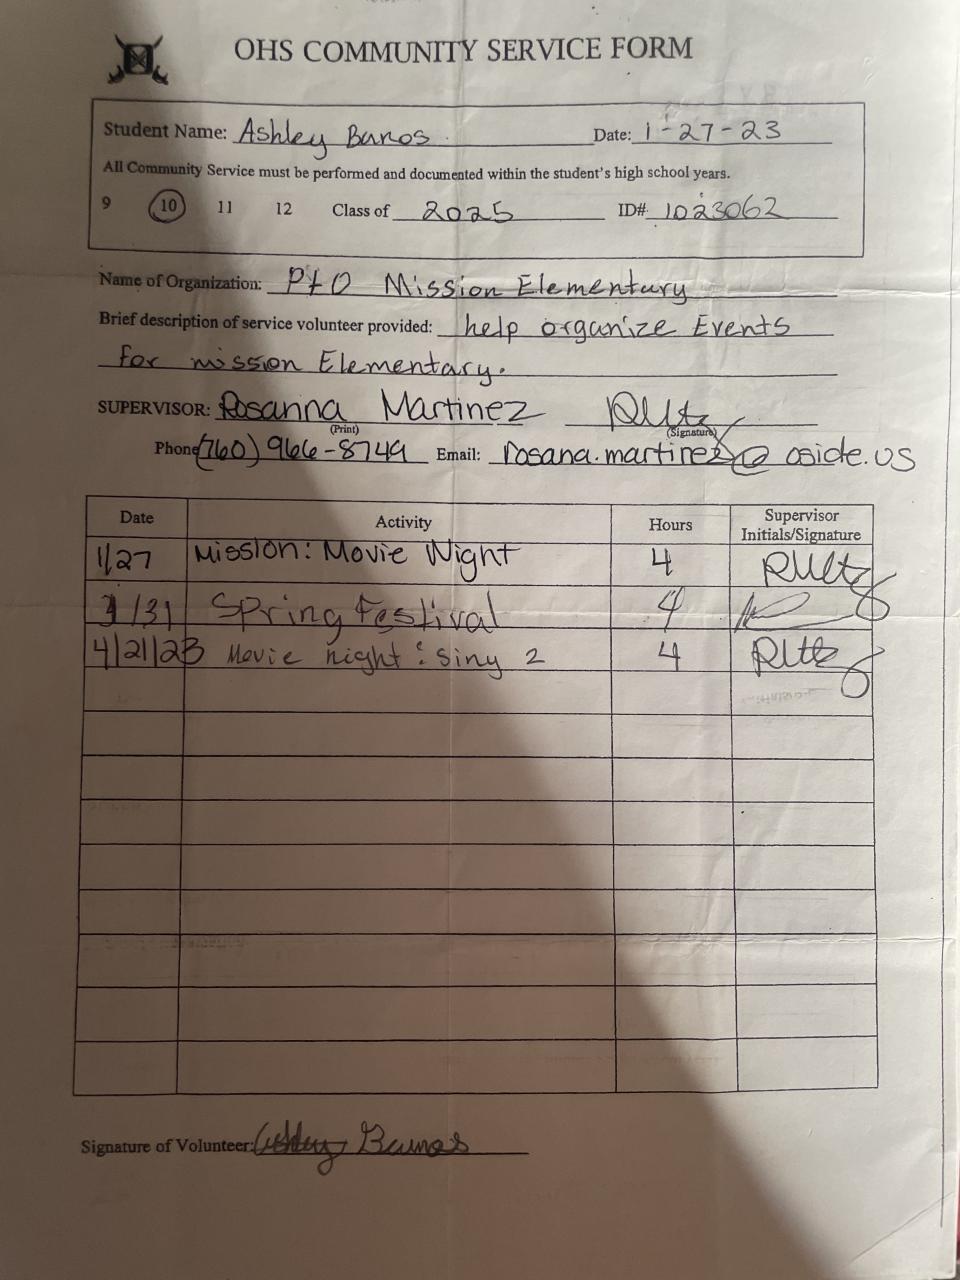 OHS COMMUNITY SERVICE FORM
Student Name: Ashley Banos Date: 1-27-23
All Community Service must be performed and documented within the student's high school years.
9 10 11 12 Class of 2025 ID# 1023062
Name of Organization: PTO Mission Elementary
Brief description of service volunteer provided: help organize Events
for mission Elementary.
SUPERVISOR: Rosanna Martinez
(Print) (Signature)
Phone (760) 966-8749 Email: rosana.martinez@oside.us
Date Activity Hours Supervisor Initials/Signature
1/27 Mission: Movie Night 4
3/31 Spring Festival 4
4/21/23 Movie night: Siny 2 4
Signature of Volunteer: Ashley Banos